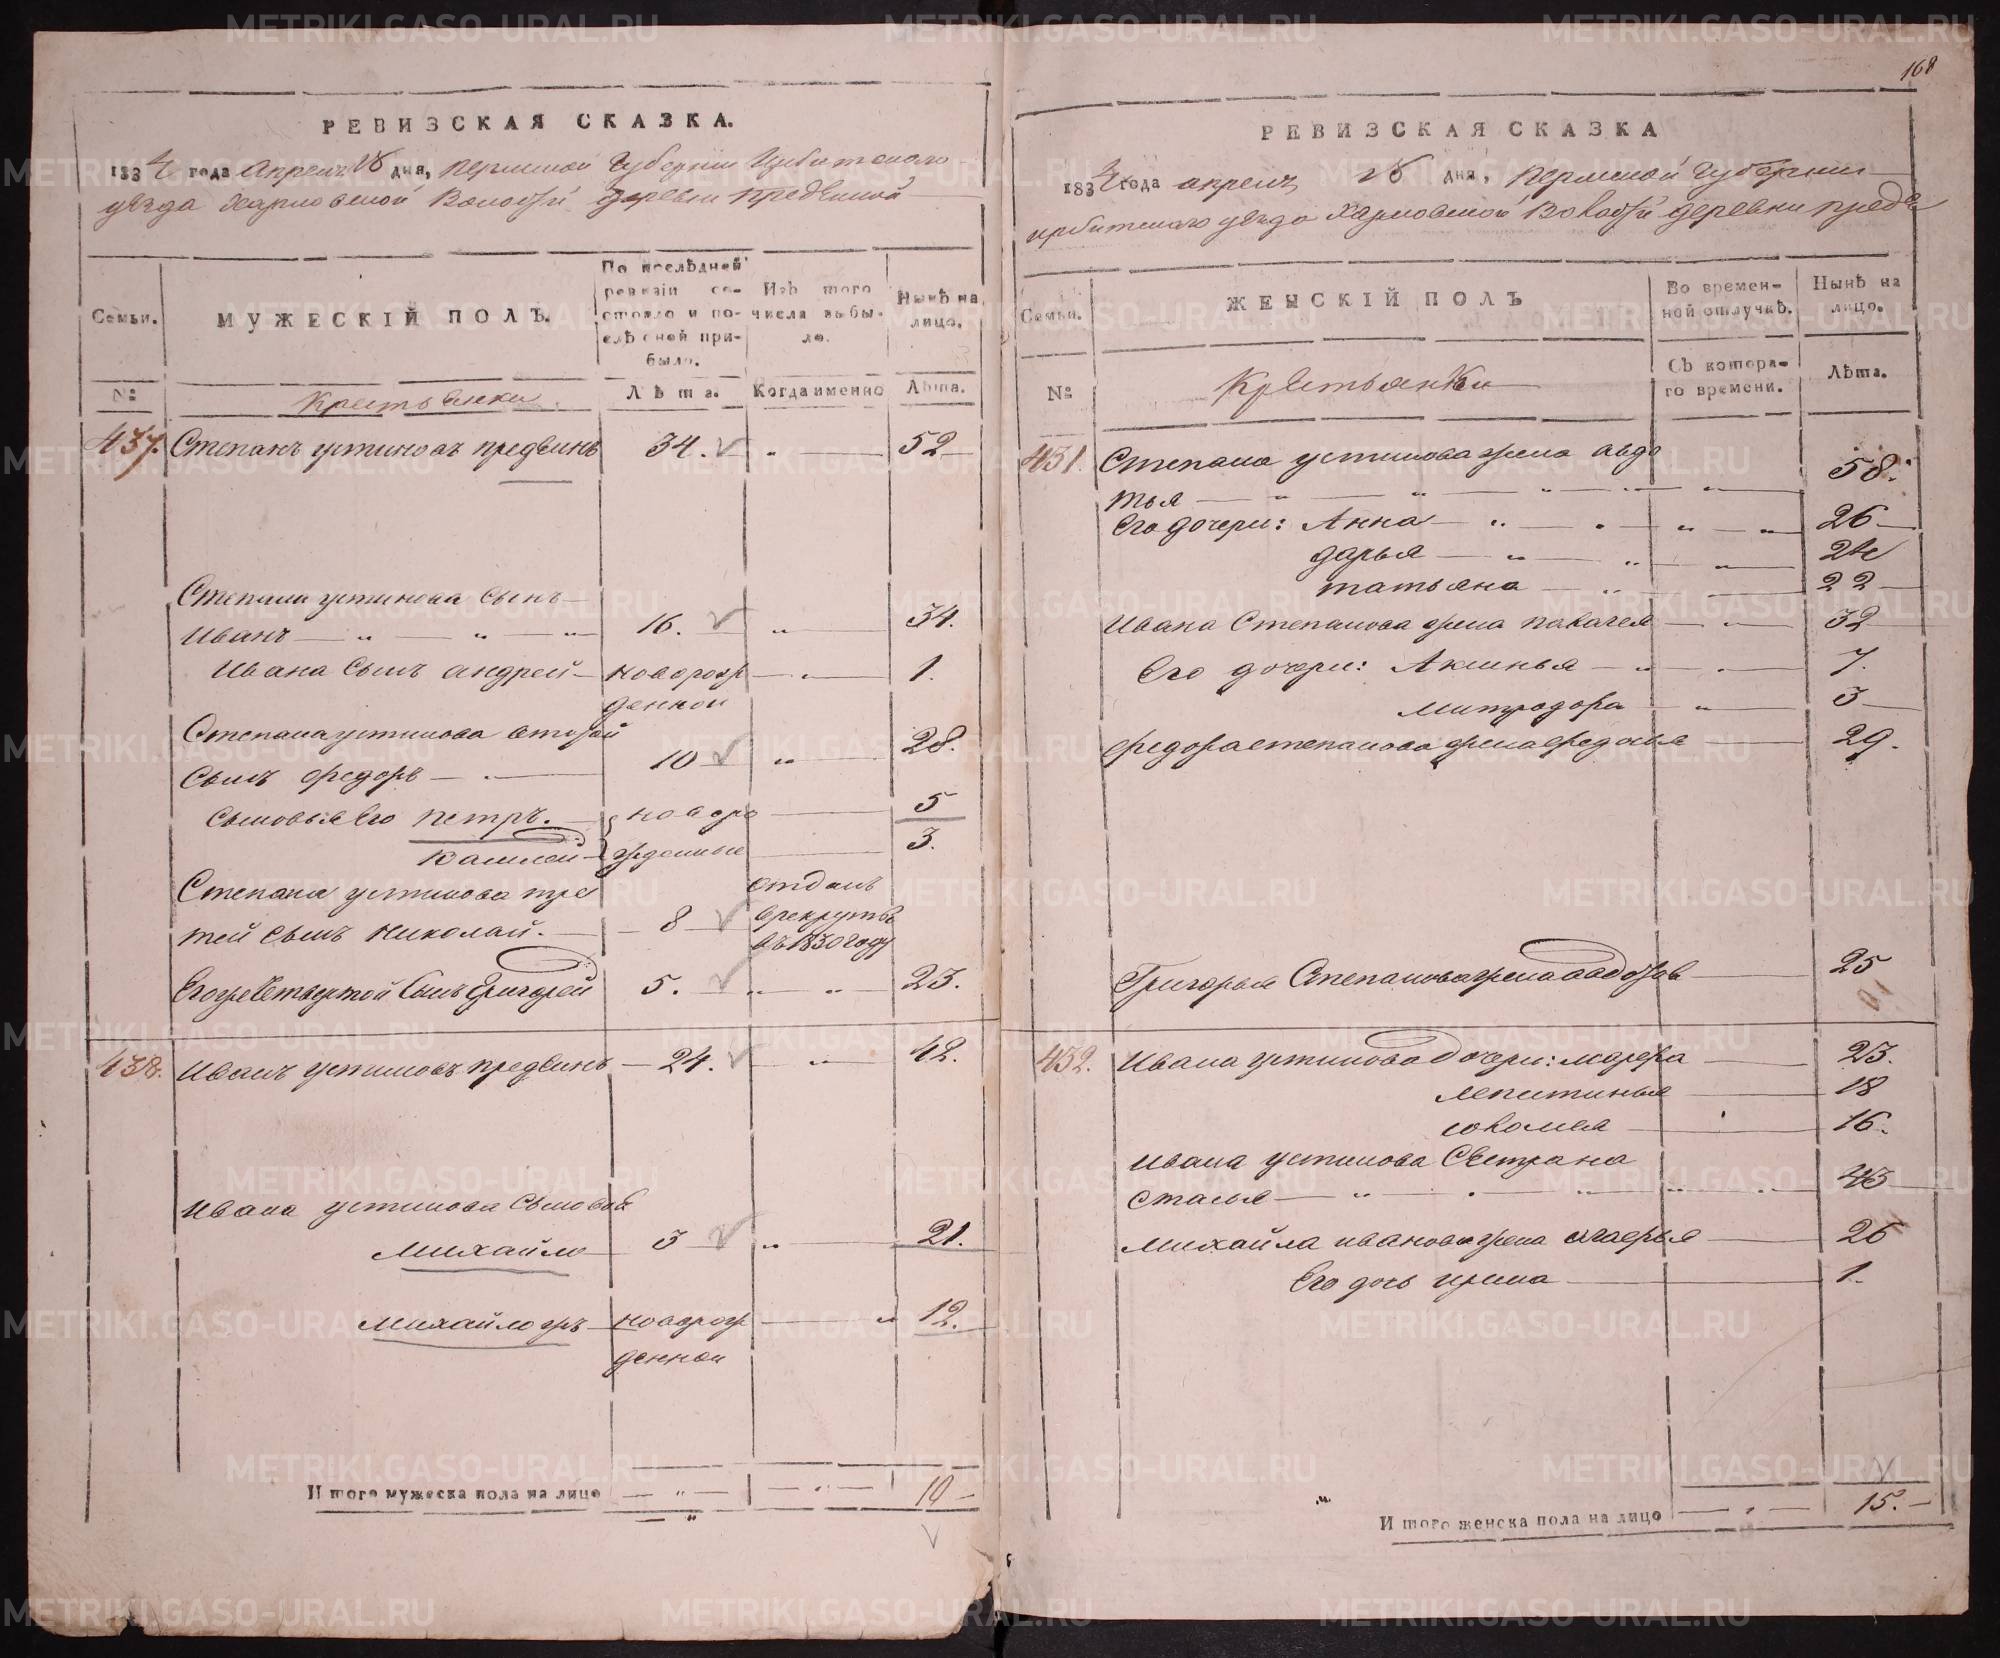 168
РЕВИЗСКАЯ СКАЗКА.
1834 года Апреля 18 дня, Пермской Губернии Ирбитского
уезда Харловской Волости деревни Предѣиной
Семьи.
МУЖЕСКІЙ ПОЛЪ.
По послѣдней ревизіи состояло и послѣ оной прибыло.
Изъ того числа выбыло.
Нынѣ на лицо.
№
Крестьянски
Лѣта.
Когда именно
Лѣта.
437. Степанъ устиновъ предѣинъ 34. 52
Степана устинова сынъ
Иванъ 16. 34.
Ивана сынъ андрей новорож 1.
денной
Степана устинова второй
сынъ федоръ 10 28.
сыновья его петръ. новоро 5
жденные 3.
Степана устинова тре отданъ
тей сынъ николай. 8 врекруты
въ 1830 году
Его же Четвертой Сынъ Григорей 5. 23.
438. иванъ устиновъ предѣинъ 24. 42.
ивана устинова сыновья
михайло 3 21.
михайло новорож 12.
денной
Итого мужеска пола на лицо 10
РЕВИЗСКАЯ СКАЗКА
1834 года апреля 18 дня, Пермской Губернии
ирбитского уезда Харловской Волости деревни предѣ
Семьи.
ЖЕНСКІЙ ПОЛЪ
Во временной отлучкѣ.
Нынѣ на лицо.
№
Крестьянки
Съ котораго времени.
Лѣта.
431. Степана устинова жена авдо
тья 58.
Его дочери: Анна 26
дарья 24
татьяна 22
Ивана Степанова жена палагея 32
Его дочери: Аксинья 7.
митродора 3
федора степанова жена федосья 29.
Григорья Степанова жена 25
452. Ивана устинова дочери: марфа 23.
18
соломея 16.
ивана устинова сестра на
стасья 43
михайла иванова жена 26
Его дочь ирина 1.
Итого женска пола на лицо 15.
METRIKI.GASO-URAL.RU